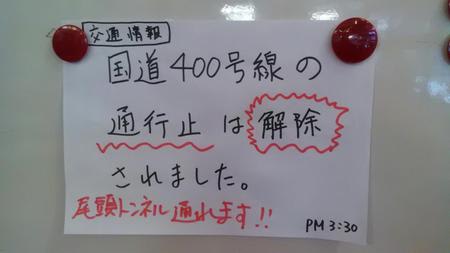 交通情報
国道400号線の
通行止は解除
されました。
尾頭トンネル通れます!!
PM3:30